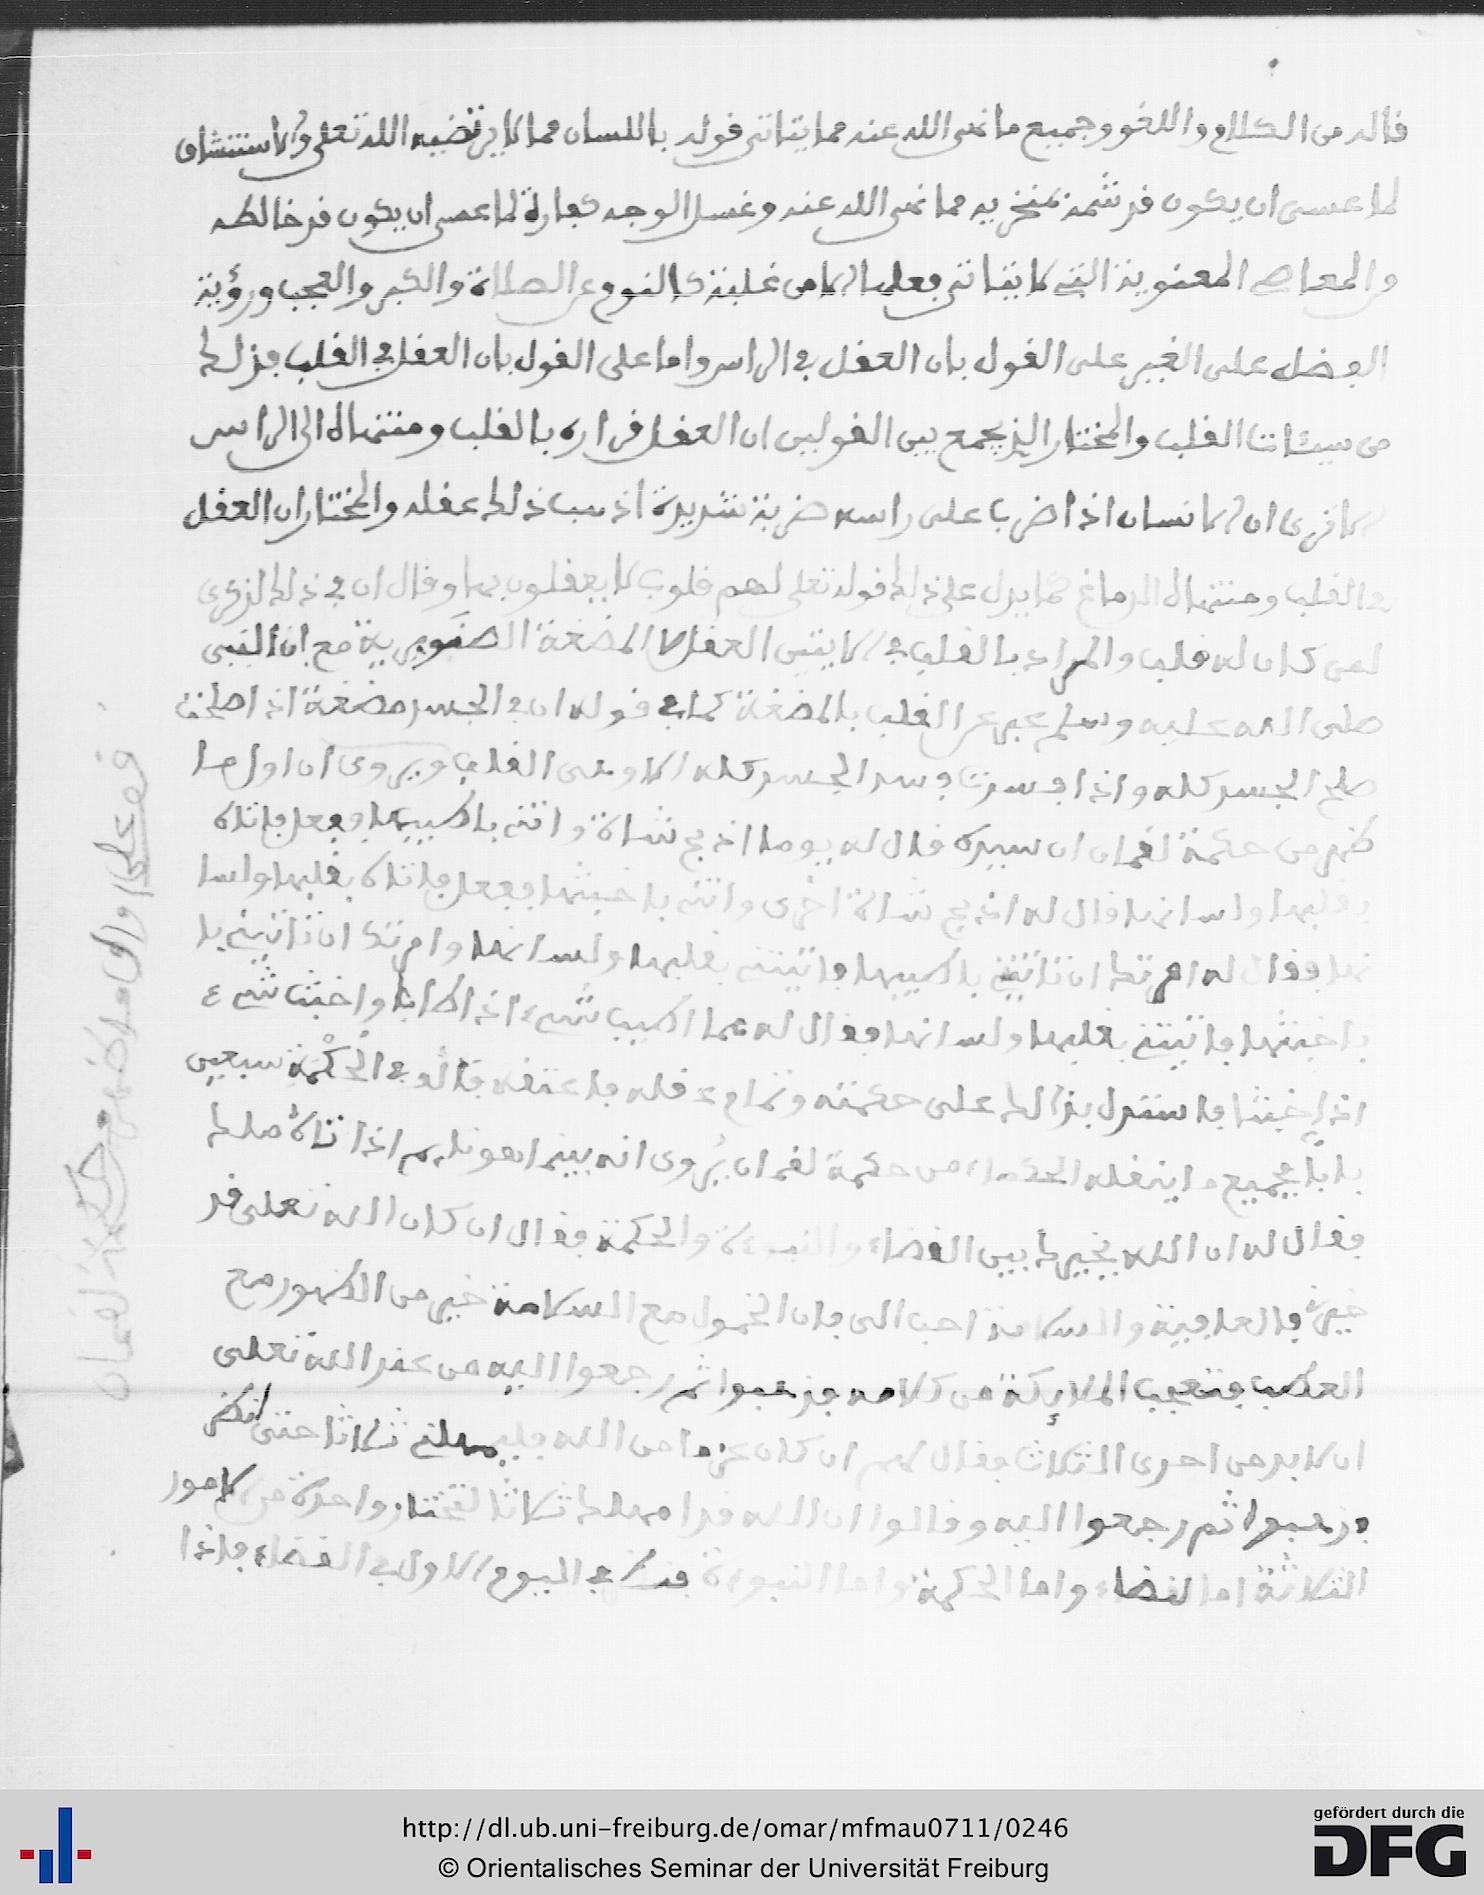 قاله من الكلام واللغو وجميع ما نهى الله عنه مما يتاتى قوله باللسان مما لا يرتضيه الله تعلى والاستنشاق
لما عسى ان يكون قد شمه بمنخريه مما نهى الله عنه وغسل الوجه كفارة لما عسى ان يكون قد خالطه
من المعاصي المعنوية التي لا يتاتى فعلها الا من غلبة كالنوم عن الصلاة والكبر والعجب ورؤية
الفضل على الغير على القول بان العقل في الراس واما على القول بان العقل في القلب فذلك
من سيئات القلب والمختار الذي يجمع بين القولين ان العقل قراره بالقلب ومنتهاه الى الراس
الا ترى ان الانسان اذا ضرب على راسه ضربة شديدة اذهبت ذلك عقله والمختار ان العقل
في القلب ومنتهاه الدماغ كما يدل على ذلك قوله تعلى لهم قلوب لا يعقلون بها وقال ان في ذلك لذكرى
لمن كان له قلب والمراد بالقلب في الايتين العقل لا المضغة الصنوبرية مع ان النبي
صلى الله عليه وسلم عبر عن القلب بالمضغة كما في قوله ان في الجسد مضغة اذا صلحت
صلح الجسد كله واذا فسدت فسد الجسد كله الا وهي القلب ويروى ان اول ما
ظهر من حكمة لقمان ان سيده قال له يوما اذبح شاة واتني باطيبها ففعل فاتاه
بقلبها ولسانها وقال له اذبح شاة اخرى واتني باخبثها ففعل فاتاه بقلبها ولسا
نها فقال له امرتك ان تاتيني باطيبها فاتيتني بقلبها ولسانها وامرتك ان تاتيني با
باخبثها فاتيتني بقلبها ولسانها فقال له هما اطيب شيء اذا طابا واخبث شيء
اذا خبثا فاستدل بذالك على حكمته وتمام عقله فاعتقه فالف في الحكمة سبعين
بابا فجميع ما ينقله الحكماء من حكمة لقمان يروى انه بينما هو نايم اذا تاه ملك
فقال له ان الله يخيرك بين القضاء والنبوءة والحكمة فقال ان كان الله تعلى قد
خيرني فالعافية والسلامة احب الى فان الخمول مع السلامة خير من الظهور مع
العطب فتعجب الملايكة من كلامه فذهبوا ثم رجعوا اليه من عند الله تعلى
ان لا بد من احدى الثلاث فقال لهم ان كان عزما من الله فليمهلني ثلاثا حتى انظر
فذهبوا ثم رجعوا اليه وقالوا ان الله قد امهلك ثلاثا لتختار واحدة من الامور
الثلاثة اما القضاء واما الحكمة واما النبوءة فنظر في اليوم الاول في القضاء فاذا
قف على اول ما ظهر من حكمة لقمان
http://dl.ub.uni-freiburg.de/omar/mfmau0711/0246
© Orientalisches Seminar der Universität Freiburg
gefördert durch die
DFG